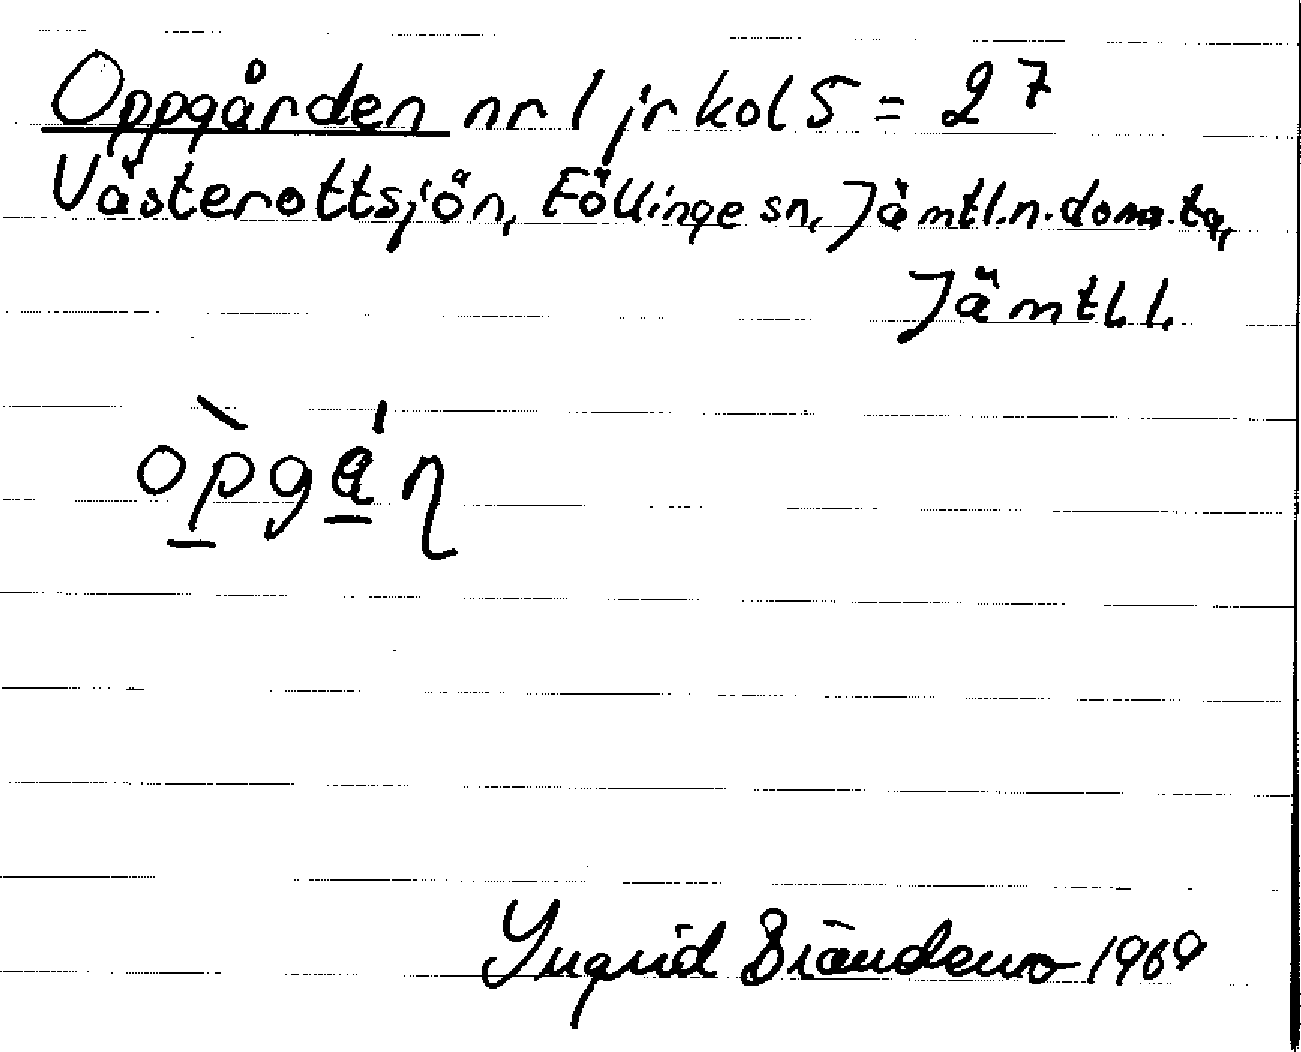 Oppgården nr 1 jr kol 5 = 2 7
Västerottsjön, Föllinge sn, Jämtl.n.doms.tg,
Jämtl.l.
òp̲gá̲ɳ
Ingrid 1969